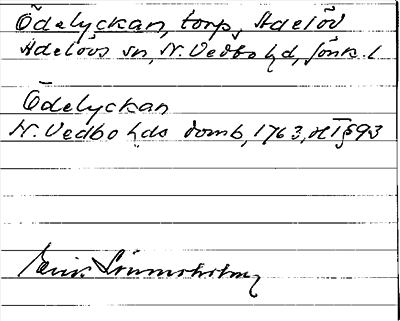 Ödelyckan, torp, Adelöv
Adelövs sn, N. Vedbo hd, Jönk. l
Ödelyckan
N. Vedbo hds domb, 1763, § 93
Erik